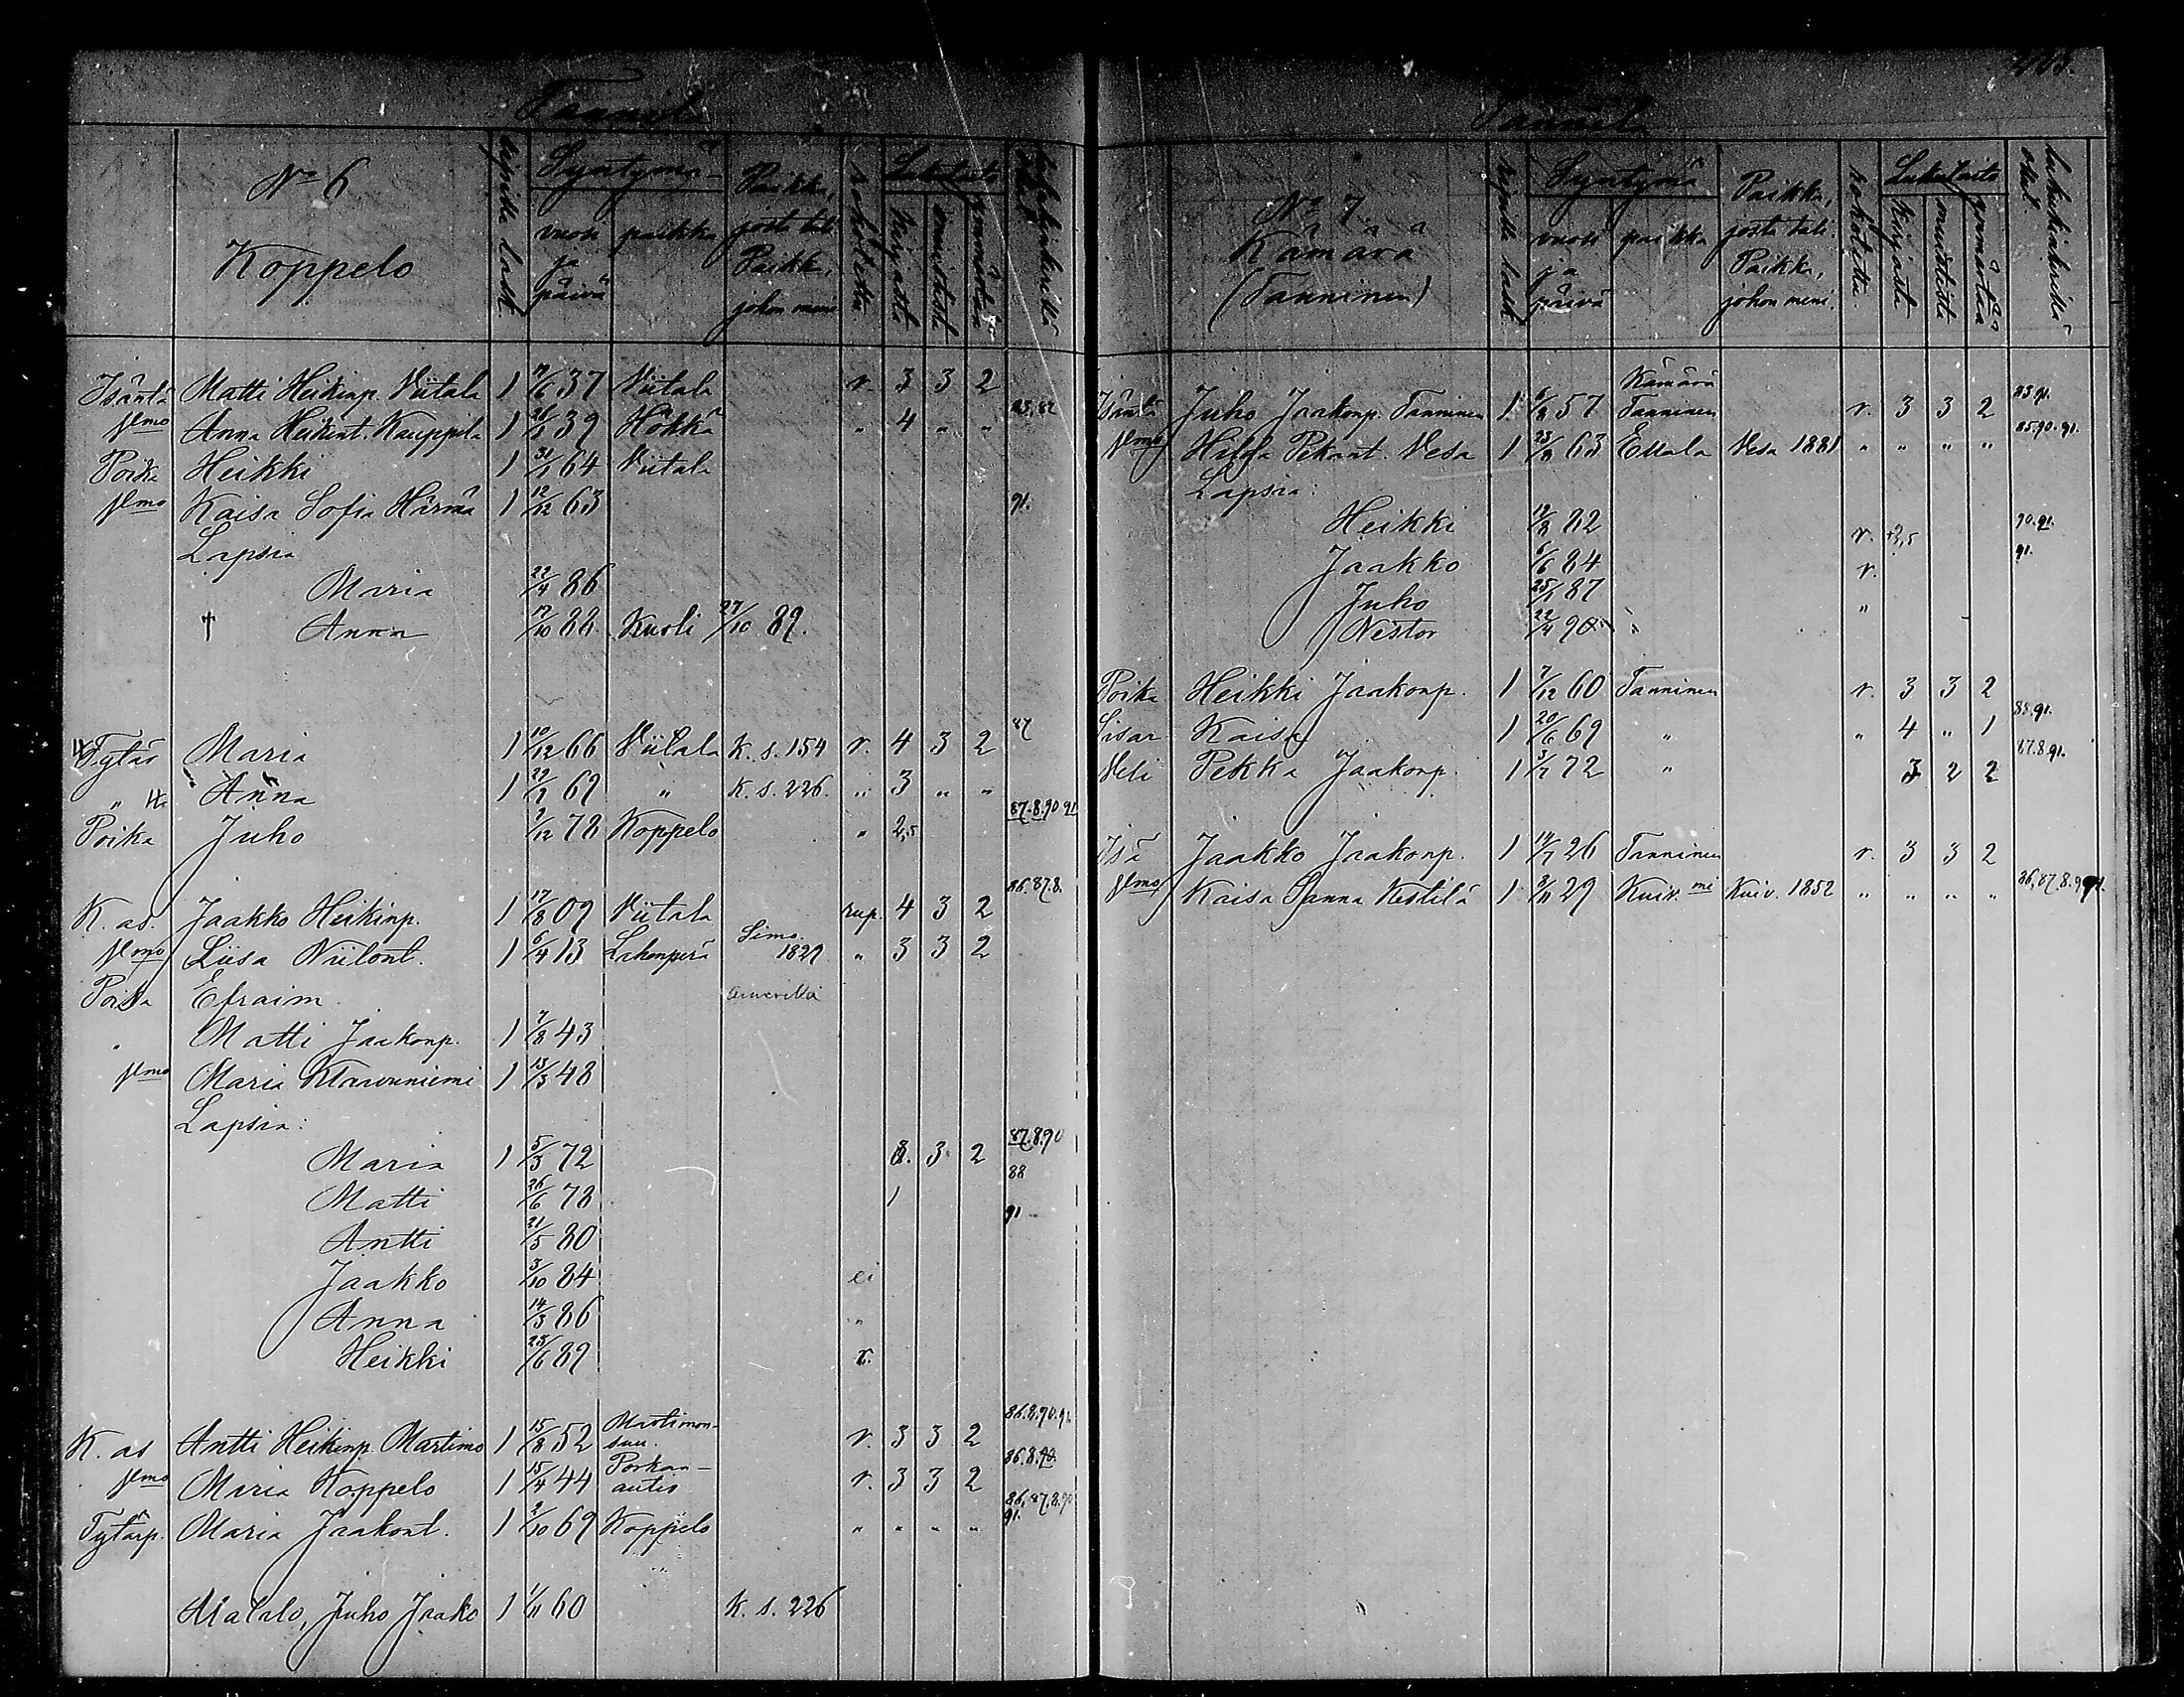 Tannila
No 6
Koppelo
ripillä lask.
Syntymä-
vuosi ja päivä
paikka
Paikka, josta tuli.
Paikka, johon meni
rokotettu
Lukutaito
kirjasta
muistista
ymmärtää
Isäntä Matti Heikinp. Viitala 1 37 Viitala r. 3 3 2
Vmo Anna Heikint. Kauppila 1 39 Hökkä " 4 " "
Poika Heikki 1 64 Viitala
Vmo Kaisa Sofia Härmä 1 12/12 63 91.
Lapsia
Maria 22/4 86
† Anna 17/10 88. Kuoli 27/10 89.
Tytär Maria 1 10/12 66 Viitala K. s. 154 r. 4 3 2 87
" Anna 1 69 " K. s. 226. " 3 " "
Poika Juho 2/12 78 Koppelo " 2,5 87.8.90.91
K. as. Jaakko Heikinp. 1 17/8 09 Viitala rup. 4 3 2 86.87.8.
Vmo Liisa Niilont. 1 6/4 13 Lakonperä Simo. 1829 " 3 3 2
Poika Efraim. Amerikka
" Matti Jaakonp. 1 7/8 43
Vmo Maria Klaavuniemi 1 13/3 48
Lapsia:
Maria 1 5/3 72 3. 3 2 87.8.90
Matti 26/6 78 1 88
Antti 21/5 80 91
Jaakko 3/10 84 ei
Anna 14/3 86 "
Heikki 23/6 89 r.
K. as Antti Heikinp. Martimo 1 15/8 52 Martimonsuu. r. 3 3 2 86.8.90.91.
Vmo Maria Koppelo 1 15/4 44 r. 3 3 2 86.8.90
Tytärp. Maria Jaakont. 1 2/10 69 Koppelo " " " " 86,87.8.90 91.
Juho Jaako 1 1/11 60 K. s. 226
Tannila
No 7
Kämärä
(Tanninen)
ripillä lask.
Syntymä
vuosi ja päivä
paikka
Paikka, josta tuli.
Paikka, johon meni.
rokotettu
Lukutaito
kirjasta
muistista
ymmärtää
lukukinkerillä ollut.
Isäntä Juho Jaakonp. Tanninen 1 6/8 57 Kämärä Tanninen r. 3 3 2
Vmo Hilda Pekant. Vesa 1 23/8 63 Vesa 1881 " " " " 85.90.91.
Lapsia:
Heikki 82 r. 90.91.
Jaakko 6/6 84 r. 91.
Juho 87 "
Nestor 22/4 90
Poika Heikki Jaakonp. 1 7/12 60 Tanninen r. 3 3 2
Sisar Kaisa 1 20/6 69 " " 4 " 1 88.91.
Veli Pekka Jaakonp. 1 3/7 72 " 3 2 2 87.8.91.
Isä Jaakko Jaakonp. 1 14/7 26 Tanninen r. 3 3 2
Vmo Kaisa Sanna Kestilä 1 3/11 29 Kuiv. mi Kuiv. 1852 " " " "